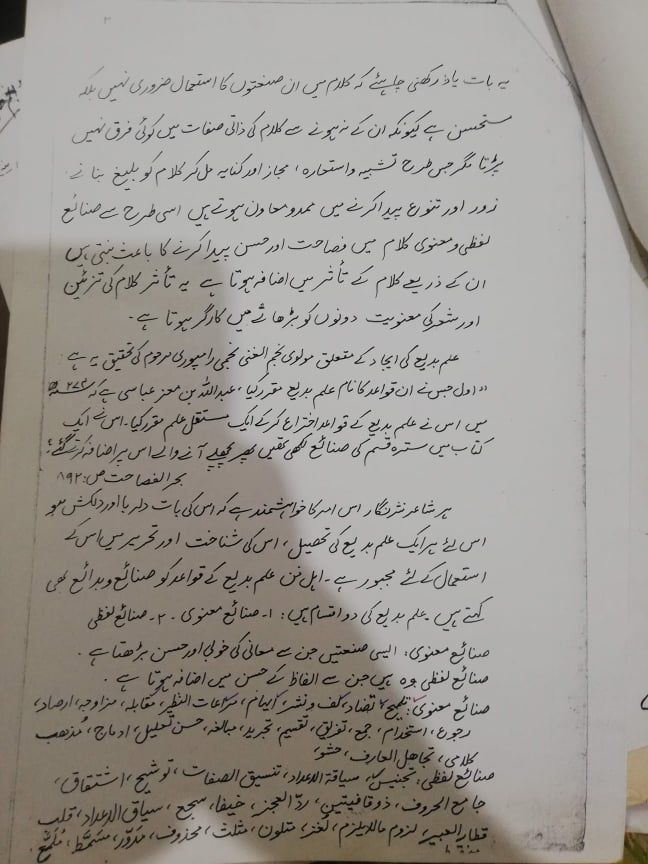 ۲
یہ بات یاد رکھنی چاہئے کہ کلام میں ان صنعتوں کا استعمال ضروری نہیں بلکہ
مستحسن ہے کیونکہ ان کے نہ ہونے سے کلام کی ذاتی صفات میں کوئی فرق نہیں
پڑتا مگر جس طرح تشبیہ و استعارہ، مجاز اور کنایہ مل کر کلام کو بلیغ بنانے
زور اور تنوع پیدا کرنے میں ممد و معاون ہوتے ہیں اسی طرح سے صنائع
لفظی و معنوی کلام میں فصاحت اور حسن پیدا کرنے کا باعث بنتی ہیں
ان کے ذریعے کلام کے تأثر میں اضافہ ہوتا ہے یہ تأثر کلام کی تزئین
اور شعر کی معنویت دونوں کو بڑھانے میں کارگر ہوتا ہے۔
علم بدیع کی ایجاد کے متعلق مولوی نجم الغنی نجمی رامپوری مرحوم کی تحقیق یہ ہے
"اول جس نے ان قواعد کا نام علم بدیع مقرر کیا، عبداللہ بن معتز عباسی ہے کہ ۲۷۴ھ
میں اس نے علم بدیع کے قواعد اختراع کر کے ایک مستقل علم مقرر کیا۔ اس نے ایک
کتاب میں سترہ قسم کی صنائع لکھی تھیں پھر پچھلے آنے والے اس پر اضافہ کرتے گئے"
بحر الفصاحت ص: ۸۹۲
ہر شاعر نثر نگار اس امر کا خواہشمند ہے کہ اس کی بات دلربا اور دلکش ہو
اس لئے ہر ایک علم بدیع کی تحصیل، اس کی شناخت اور تحریر میں اس کے
استعمال کے لئے مجبور ہے۔ اہل فن علم بدیع کے قواعد کو صنائع و بدائع بھی
کہتے ہیں۔ علم بدیع کی دو اقسام ہیں: ۱۔ صنائع معنوی ۔ ۲۔ صنائع لفظی
صنائع معنوی: ایسی صنعتیں جن سے معانی کی خوبی اور حسن بڑھتا ہے۔
صنائع لفظی وہ ہیں جن سے الفاظ کے حسن میں اضافہ ہوتا ہے۔
صنائع معنوی: تلمیح، تضاد، لف و نشر، ایہام، مراعات النظیر، مقابلہ، مزاوجہ، ارصاد،
رجوع، استخدام، جمع، تفریق، تقسیم، تجرید، مبالغہ، حسن تعلیل، ادماج، مذہب
کلامی، تجاہل العارف، حشو،
صنائع لفظی: تجنیس، سیاقۃ الاعداد، تنسیق الصفات، توشیح، اشتقاق،
جامع الحروف، ذو قافیتین، ردّ العجز، خیفا، سجع، سیاق الاعداد، قلب
قطار البعیر، لزوم مالایلزم، لغز، متلون، مثلث، محذوف، مدوّر، مسمّط، ملمّع